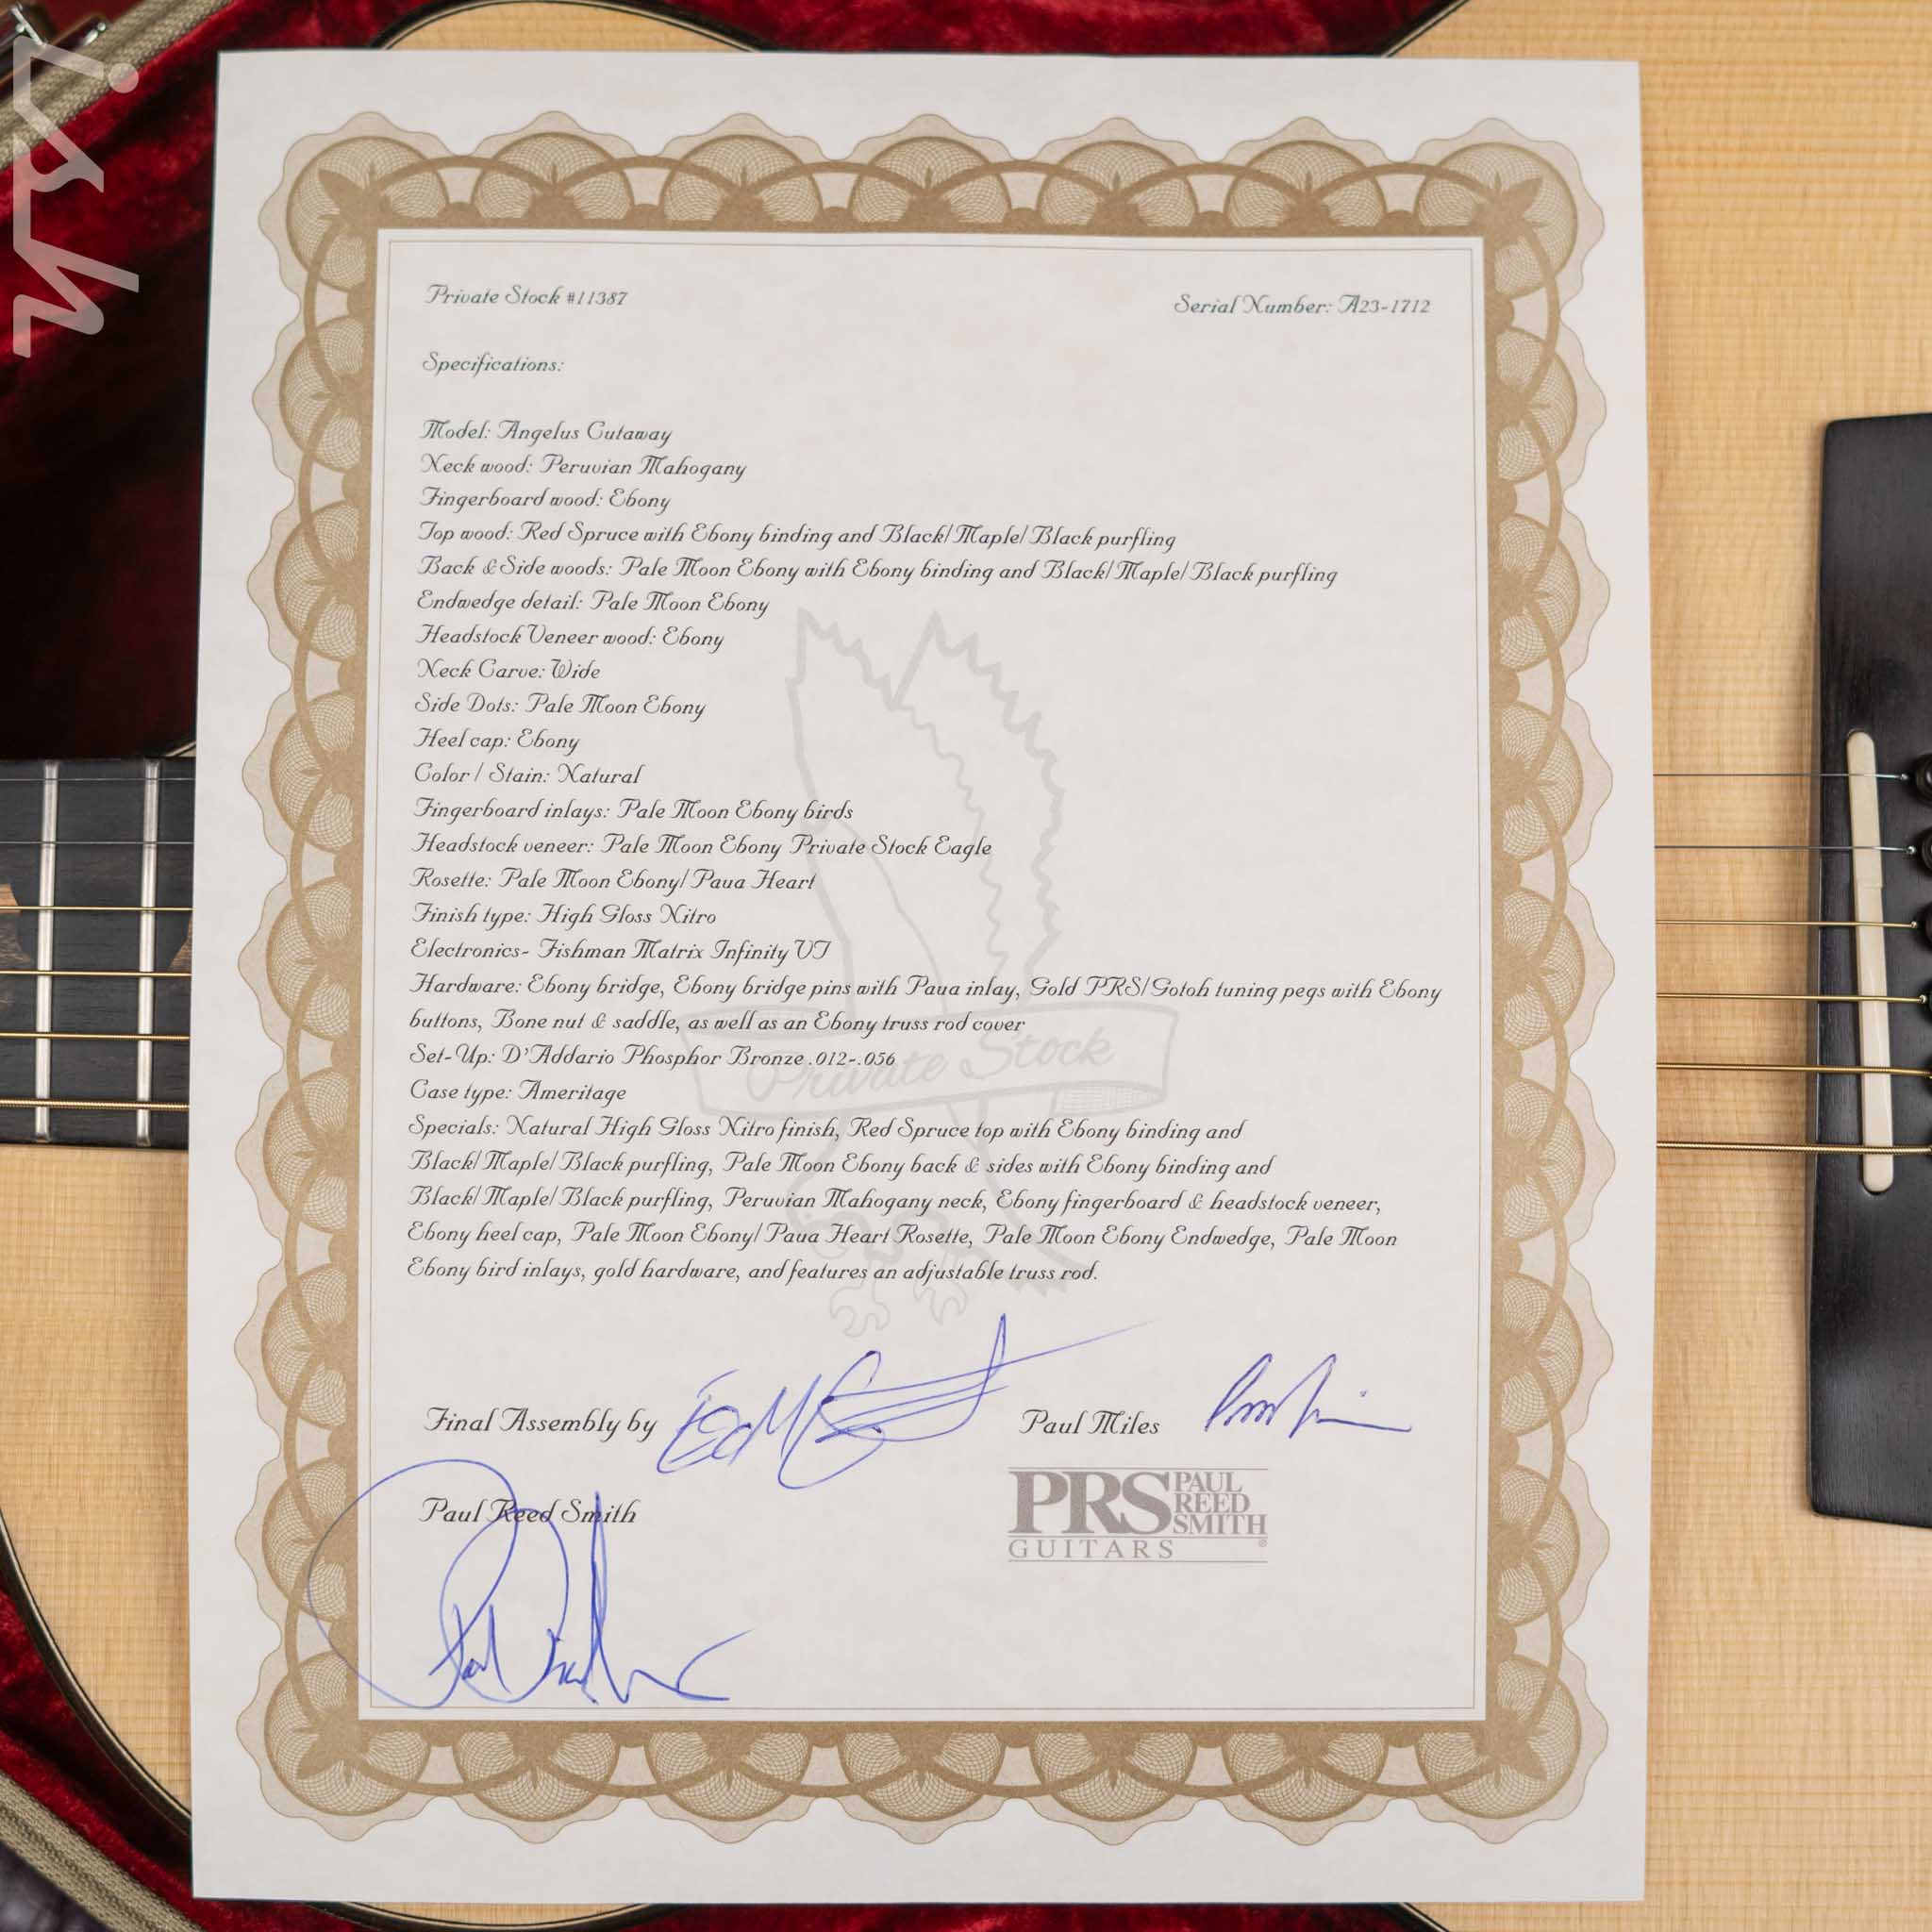 ish
Private Stock #11387
Serial Number: A23-1712
Specifications:
Model: Angelus Cutaway
Neck wood: Peruvian Mahogany
Fingerboard wood: Ebony
Top wood: Red Spruce with Ebony binding and Black/Maple/Black purfling
Back & Side woods: Pale Moon Ebony with Ebony binding and Black/Maple/Black purfling
Endwedge detail: Pale Moon Ebony
Headstock Veneer wood: Ebony
Neck Carve: Wide
Side Dots: Pale Moon Ebony
Heel cap: Ebony
Color / Stain: Natural
Fingerboard inlays: Pale Moon Ebony birds
Headstock veneer: Pale Moon Ebony Private Stock Eagle
Rosette: Pale Moon Ebony/Paua Heart
Finish type: High Gloss Nitro
Electronics- Fishman Matrix Infinity VT
Hardware: Ebony bridge, Ebony bridge pins with Paua inlay, Gold PRS/Gotoh tuning pegs with Ebony
buttons, Bone nut & saddle, as well as an Ebony truss rod cover
Set-Up: D'Addario Phosphor Bronze .012-.056
Private Stock
Case type: Ameritage
Specials: Natural High Gloss Nitro finish, Red Spruce top with Ebony binding and
Black/Maple/Black purfling, Pale Moon Ebony back & sides with Ebony binding and
Black/Maple/Black purfling, Peruvian Mahogany neck, Ebony fingerboard & headstock veneer,
Ebony heel cap, Pale Moon Ebony/Paua Heart Rosette, Pale Moon Ebony Endwedge, Pale Moon
Ebony bird inlays, gold hardware, and features an adjustable truss rod.
Final Assembly by
Paul Miles
Paul Reed Smith
PRS PAUL REED SMITH
GUITARS